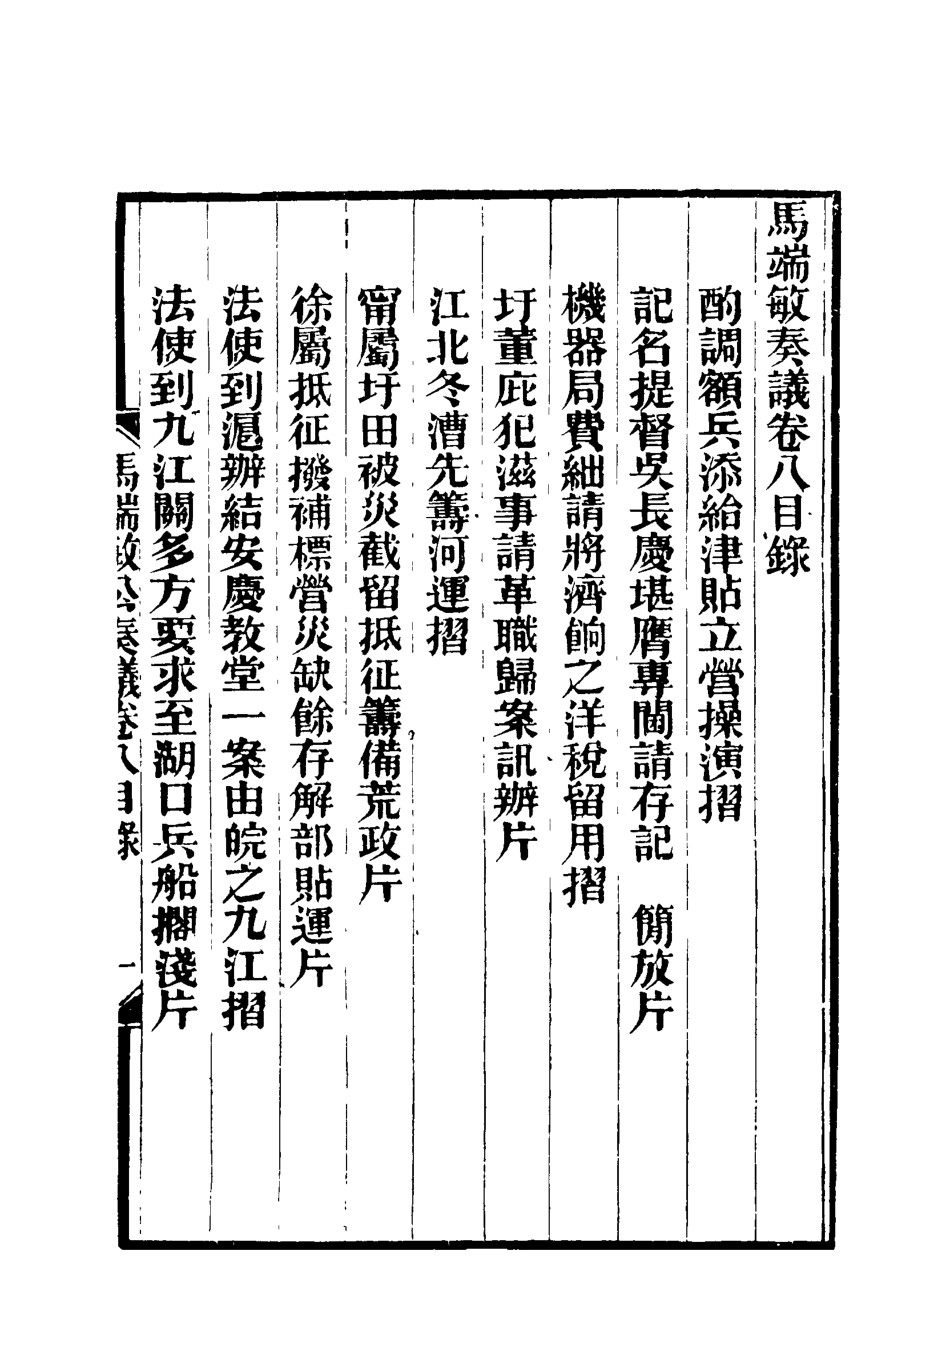 馬端敏奏議卷八目錄
酌調額兵添給津貼立營操演摺
記名提督吳長慶堪膺專閫請存記　簡放片
機器局費絀請將濟餉之洋稅留用摺
圩董庇犯滋事請革職歸案訊辦片
江北冬漕先籌河運摺
甯屬圩田被災截留抵征籌備荒政片
徐屬抵征撥補標營災缺餘存解部貼運片
法使到滬辦結安慶教堂一案由皖之九江摺
法使到九江關多方要求至湖口兵船擱淺片
馬端敏公奏議卷八目錄　一